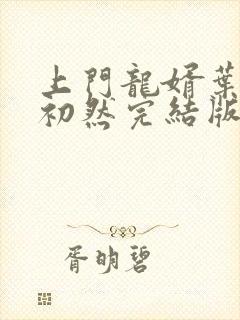 上門龍婿葉
初然完結版
胥明碧